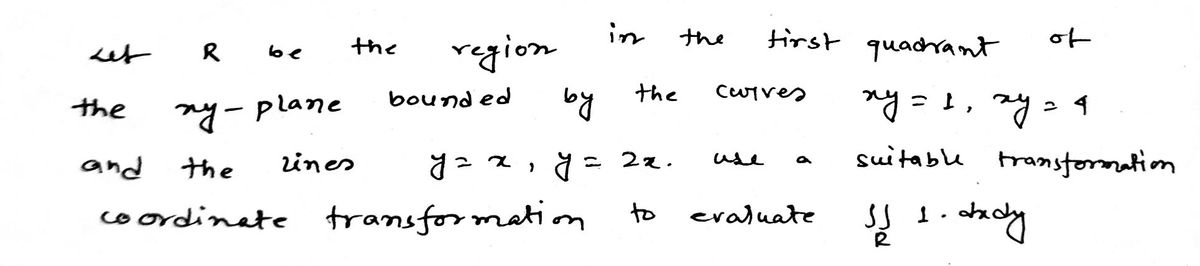 Let R be the region in the first quadrant of
the xy-plane bounded by the curves xy = 1, xy = 4
and the lines y = x, y = 2x. use a suitable transformation
coordinate transformation to evaluate ∬_R 1. dxdy